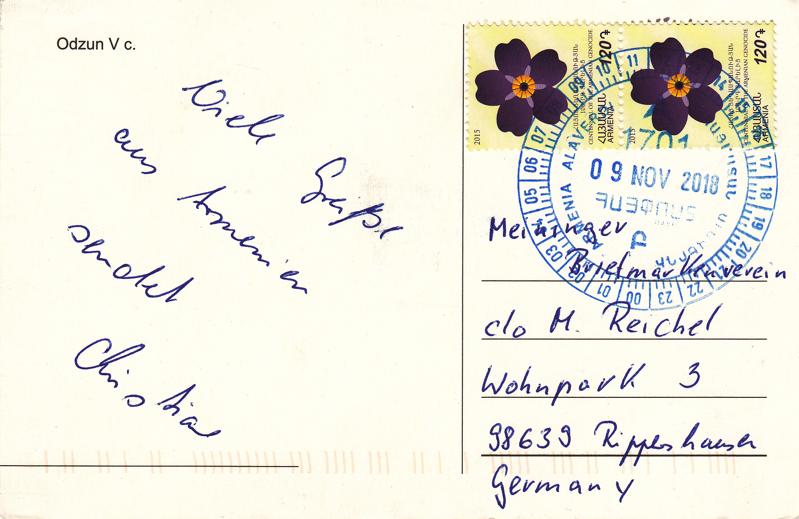 Odzun V c.
Viele Grüße
aus Armenien
sendet
Christian
120֏
ՀԱՅԱՍՏԱՆ
ARMENIA
2015
CENTENNIAL OF THE ARMENIAN GENOCIDE
120֏
ՀԱՅԱՍՏԱՆ
ARMENIA
2015
ARMENIAN GENOCIDE
1701
09 NOV 2018
ARMENIA ALAVERDI
00 01 02 03 04 05 06 07 08 09 10 11 14 15 17 18 19 20 21 22 23
Meininger
Briefmarkenverein
c/o M. Reichel
Wohnpark 3
98639 Rippershausen
Germany